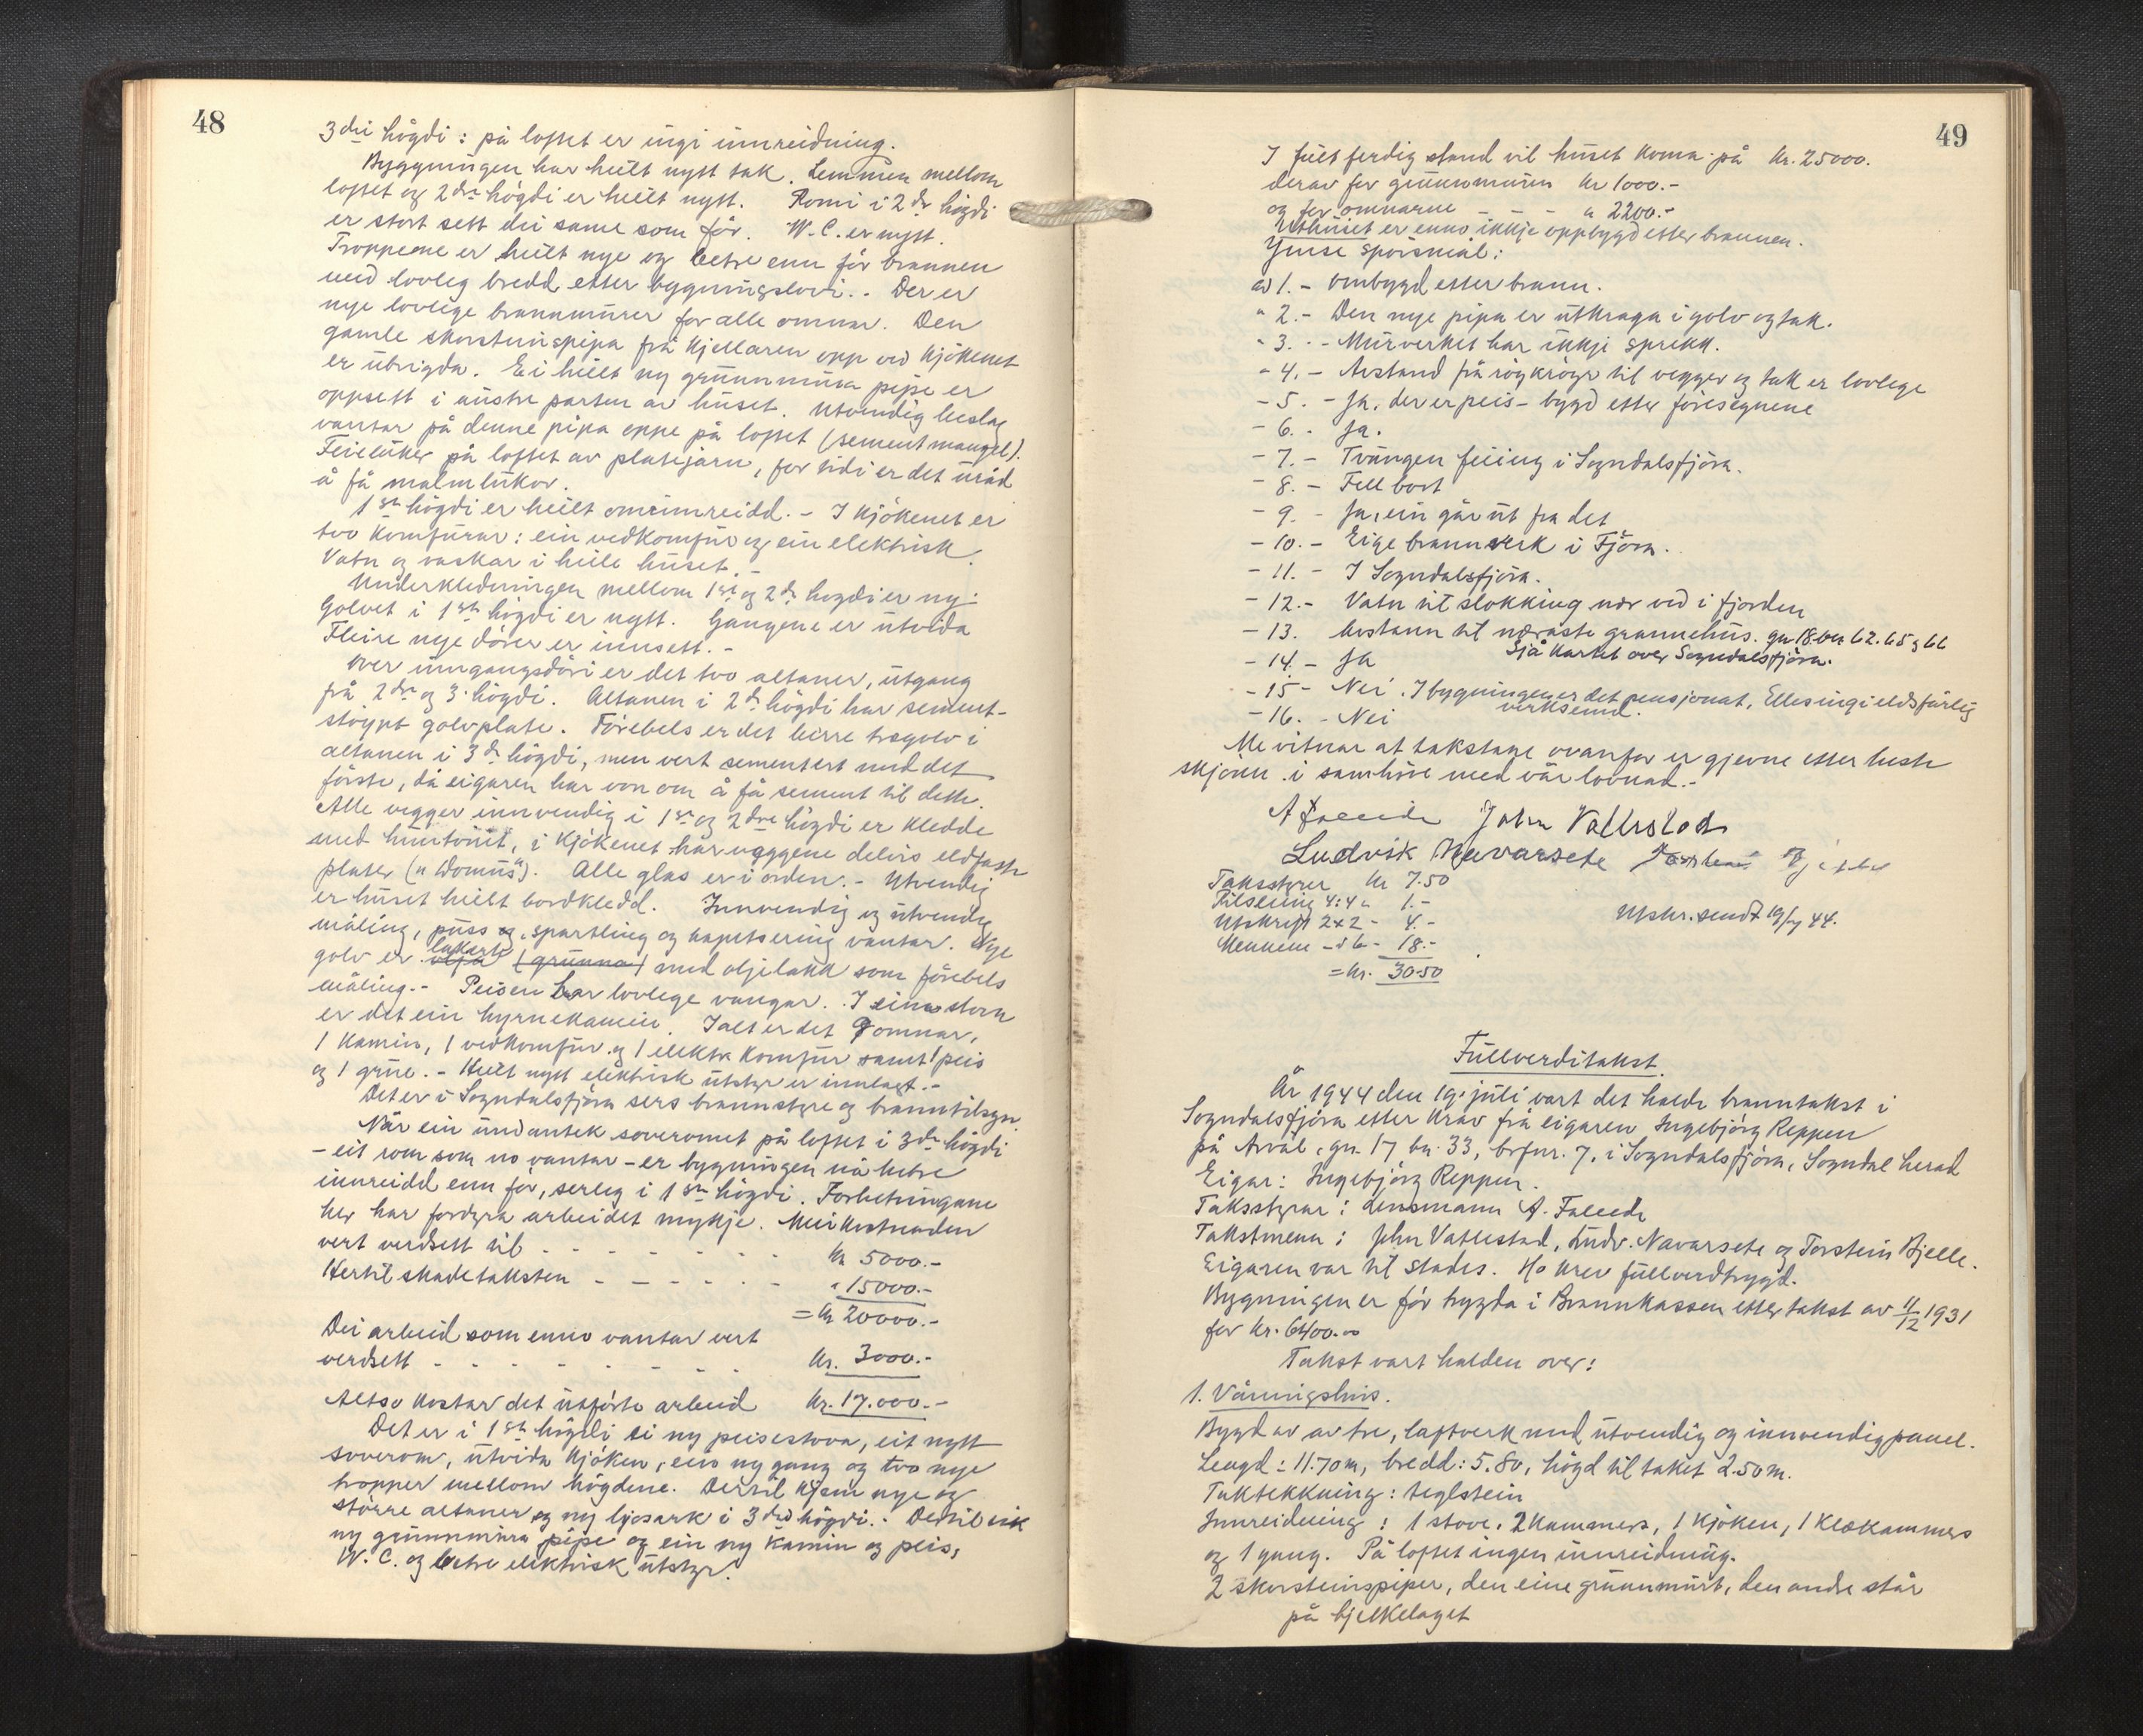 48
3dri högdi: på loftet er ingi innreidning.
Byggningen har heilt nytt tak. Lemmen mellom
loftet og 2dre högdi er heilt nytt. Romi i 2dre högdi
er stort sett dei same som för. W.C. er nytt.
Troppene er heilt nye og betre enn för brannen
med lovleg bredd etter bygningslovi. Der er
nye lovlege brannmurer for alle omnar. Den
gamle skorsteinspipa frå kjellaren opp ved kjökenet
er utrigda. Ei heilt ny grunnmura pipe er
oppsett i austre parten av huset. Utvendig beslag
vantar på denne pipa oppe på loftet (sementmangel).
Feieluker på loftet av platejarn, for tidi er det uråd
å få malmlukor.
1ste högdi er heilt ominnreidd. - I kjökenet er
two komfurar: ein vedkomfur og ein elektrisk.
Vatn og vaskar i heile huset. -
Underkledningen mellom 1ste og 2dre högdi er ny.
Golvet i 1ste högdi er nytt. Gangene er utvida
Fleire nye dörer er innsett. -
Over inngangsdöri er det two altaner, utgang
frå 2dre og 3. högdi. Altanen i 2dre högdi har sement-
stöypt golvplate. Förebels er det berre tregolv i
altanen i 3dre högdi, men vert sementert med det
förste, då eigaren har von om å få sement til dette.
Alle vegger innvendig i 1ste og 2dre högdi er kledde
med huntonit, i kjökenet har veggene delvis eldfaste
plater ("Domus"). Alle glas er i orden. - Utvendig
er huset heilt bordkledd. Innvendig og utvendig
måling, puss og sparkling og tapetsering vantar. Nye
golv er lakerte (grunna) med oljelakk som förebels
måling. - Peisen har lovlege vangar. I eine stova
er det ein hyrnekamin. I alt er det 9 omnar,
1 kamin, 1 vedkomfur og 1 elektr. komfur samt 1 peis
og 1 grue. - Heilt nytt elektrisk utstyr er innlagt. -
Det er i Sogndalsfjöra sers brannstyre og branntilsyn.
Når ein undantek soveromet på loftet i 3dre högdi
- eit rom som no vantar - er bygningen nå betre
innreidd enn för, serleg i 1ste högdi. Forbetringane
her har fordyra arbeidet mykje. Meirkostnaden
vert verdsett til - - - - - - - kr 5000.-
Hertil skadetaksten - - - - - - " 15000.-
= kr 20000.-
Dei arbeid som enno vantar vert
verdsett - - - - - - - - kr. 3000.-
Altso kostar det utförte arbeid kr. 17.000.-
Det er i 1ste högdi ei ny peisestova, eit nytt
soverom, utvida kjöken, ein ny gang og two nye
tropper mellom högdene. Dertil kjem nye og
större altaner og ny ljosark i 3dre högdi. Dertil eik
ny grunnmura pipe og ein ny kamin og peis,
W.C. og betre elektrisk utstyr.
49
I fullt ferdig stand vil huset koma på kr. 25000.
derav for grunnmuren kr 1000.-
og for omnarne - - - " 2200.-
Uthuset er enno ikkje oppbygd etter brannen.
Ymse spörsmål:
ad 1. - Ombygd etter brann.
" 2. - Den nye pipa er utkraga i golv og tak.
" 3. - Murverket har ikkje sprekk.
" 4. - Avstand frå röykröyr til vegger og tak er lovlege
- 5. - Ja, der er peis - bygd etter föresegnene
- 6. - Ja.
- 7. - Tvungen feiing i Sogndalsfjöra.
- 8. - Fell bort
- 9. - Ja, ein går ut fra det
- 10. - Eige brannverk i Fjöra.
- 11. - I Sogndalsfjöra.
- 12. - Vatn til slokking nær ved i fjorden
- 13. Avstann til næraste grannehus. gn 18. bn 62. 65 og 66
Sjå kartet over Sogndalsfjöra.
- 14. - Ja
- 15 - Nei. I bygningen er det pensjonat, Elles ingi eldsfårleg
verksemd.
- 16. - Nei
Me vitnar at takstane ovanfor er gjevne etter beste
skjön i samhöve med vår lovnad. -
A Faleide John Vatlestad
Ludvik Navarsete Torstein Bjelle
Taksstyrer kr 7.50
Tilseiing 4:4 " 1.-
Utskrift 2x2 - 4.-
Mennene - à 6 - 18.-
= kr. 30.50
Utskr. sendt 19/7 44.
Fullverditakst.
År 1944 den 19. juli vart det halde branntakst i
Sogndalsfjöra etter krav frå eigaren Ingebjörg Reppen
på Arval, gn. 17 bn. 33, brfnr. 7, i Sogndalsfjöra, Sogndal herad
Eigar: Ingebjörg Reppen.
Taksstyrar: Lensmann A. Faleide
Takstmenn: John Vatlestad, Ludv. Navarsete og Torstein Bjelle.
Eigaren var til stades. Ho krev fullverdtrygd.
Bygningen er för trygda i Brannkassen etter takst av 11/12 1931
for kr. 6400.00
Takst vart halden over:
1. Våningshus.
Bygd av av tre, laftverk med utvendig og innvendig panel.
Lengd: 11.70 m, bredd: 5.80, högd til taket 2.50 m.
Taktekkning: teglstein
Innreidning: 1 stove, 2 kammers, 1 kjöken, 1 klekammers
og 1 gang. På loftet ingen innreidning.
2 skorsteinspiper, den eine grunnmurt, den andre står
på bjelkelaget